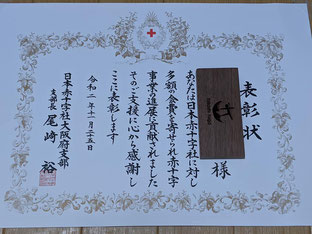 表彰状
様
あなたは日本赤十字社に対し
多額の会費を寄せられ赤十字
事業の進展に貢献されました
そのご支援に心から感謝し
ここに表彰します
令和二年十一月二十五日
日本赤十字社大阪府支部
支部長 尾崎 裕